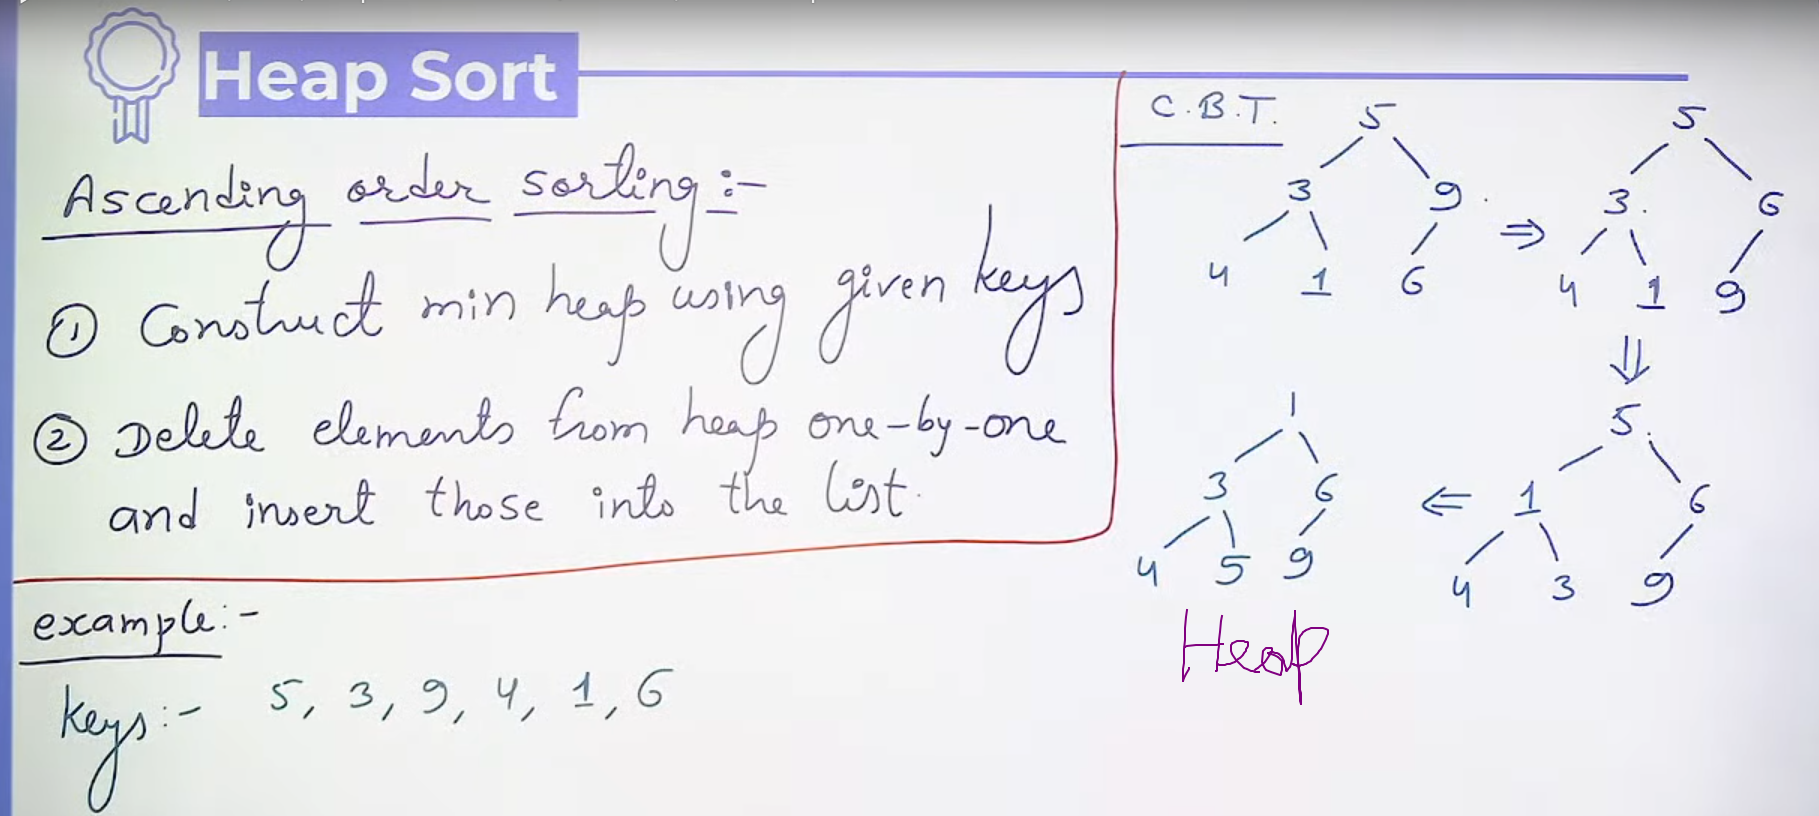 Heap Sort
Ascending order sorting :-
① Construct min heap using given keys
② Delete elements from heap one-by-one
and insert those into the list.
example :-
keys :- 5, 3, 9, 4, 1, 6
C.B.T.
5
3 9
4 1 6
⇒
5
3 6
4 1 9
⇓
5
1 6
4 3 9
⇐
1
3 6
4 5 9
Heap